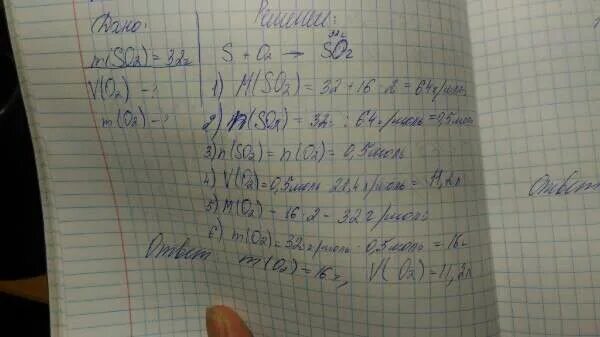 Дано:
m(SO2) = 32г
V(O2) - ?
m(O2) - ?
Решение:
32г
S + O2 → SO2
1) M(SO2) = 32 + 16 · 2 = 64 г/моль
2) n(SO2) = 32г : 64 г/моль = 0,5 моль
3) n(SO2) = n(O2) = 0,5 моль
4) V(O2) = 0,5 моль · 22,4 г/моль = 11,2л
5) M(O2) - 16 · 2 - 32 г/моль
6) m(O2) = 32 г/моль · 0,5 моль = 16г
Ответ m(O2) = 16г, V(O2) = 11,2л
Ответ